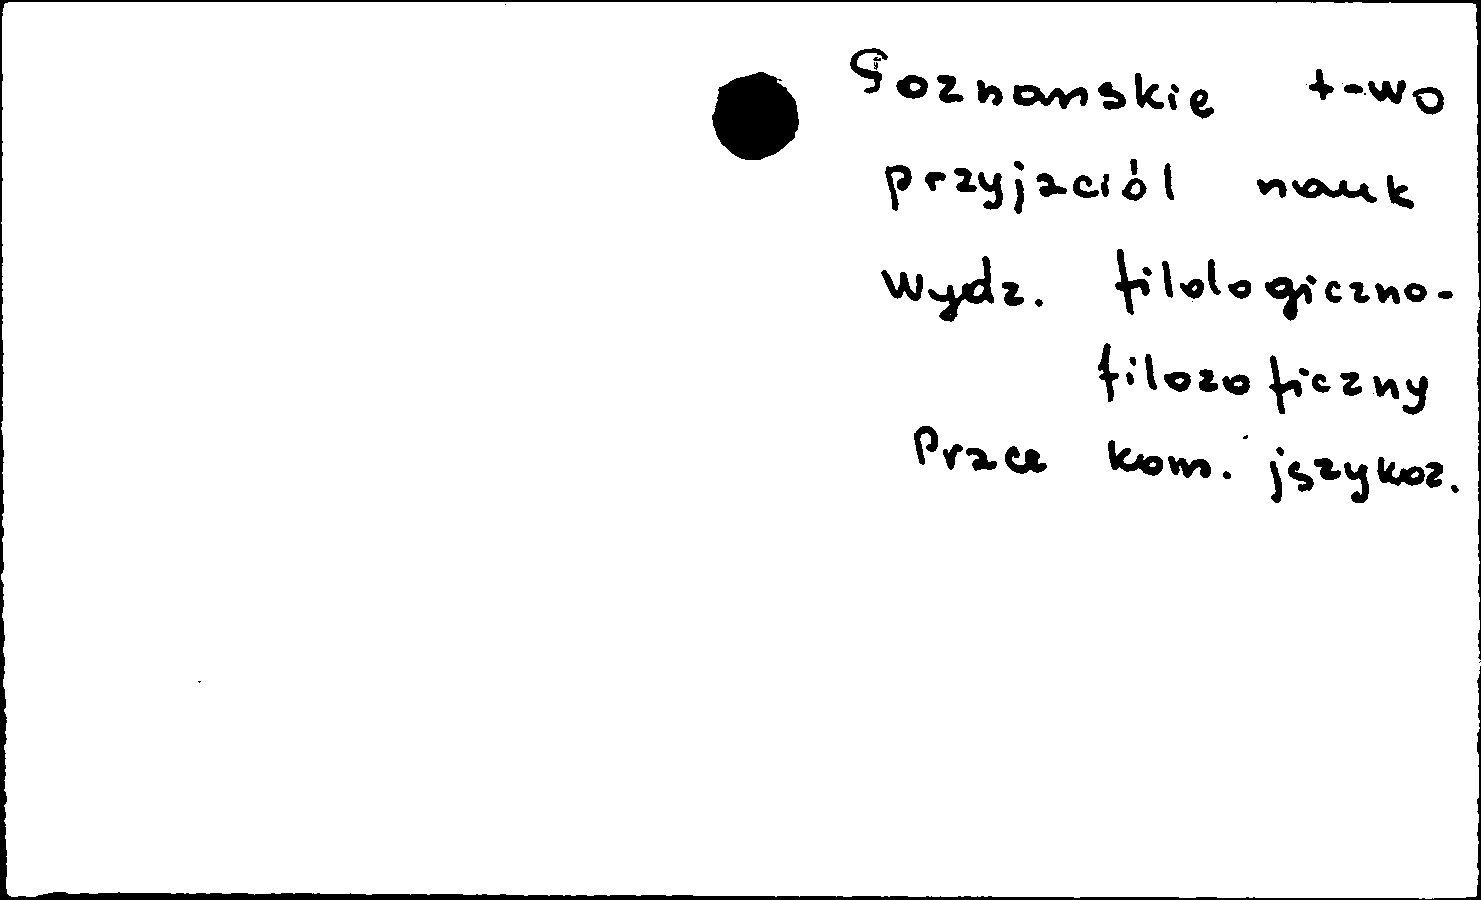 Poznanskie t-wo
przyjaciół nauk
Wydz. filologiczno-
filozoficzny
Prace kom. językoz.